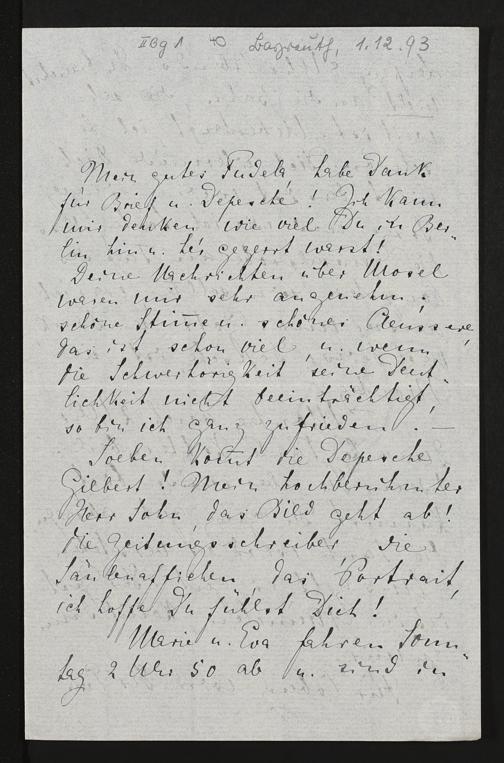 II Bg 1 Bayreuth, 1.12.93
Mein gutes Fudela habe Dank
für Brief u. Depesche! Ich kann
mir denken wie viel Du in Ber-
lin hin u. her gezerrt warst!
Deine Nachrichten über Mosel
waren mir sehr angenehm,
schöne Stimme u. schönes Aeussere,
das ist schon viel, u. wenn
die Schwerhörigkeit seine Deut-
lichkeit nicht beeinträchtigt,
so bin ich ganz zufrieden. —
Soeben kommt die Depesche
Gilbert! Mein hochberühmter
Herr Sohn, das Bild geht ab!
Die Zeitungsschreiber, die
Säulenaffichen, das Portrait,
ich hoffe Du fühlst Dich!
Marie u. Eva fahren Sonn-
tag 2 Uhr 50 ab u. sind in